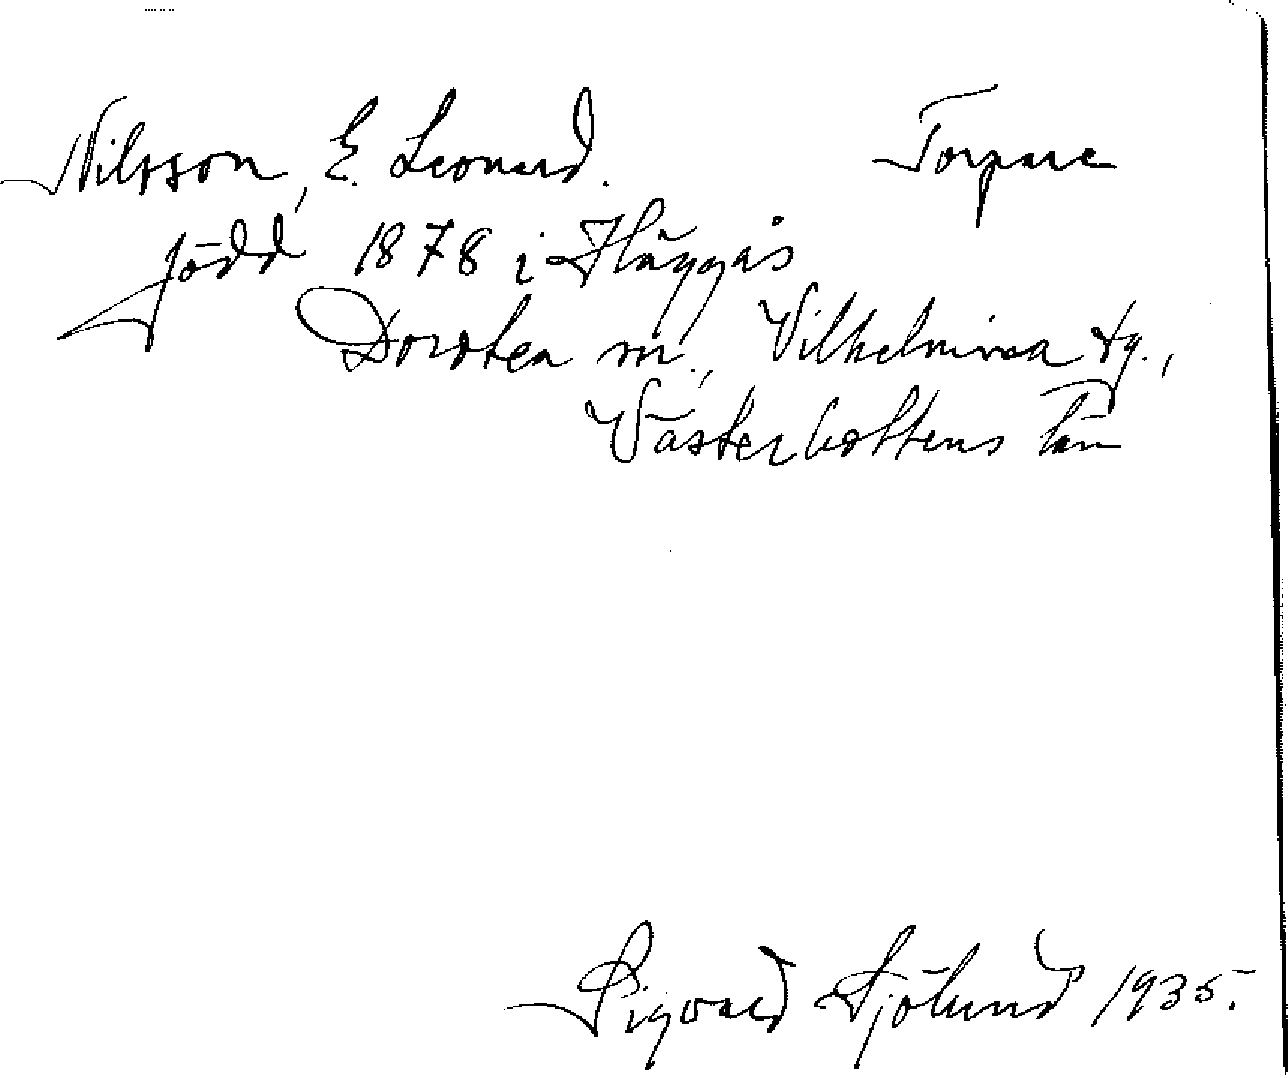 Nilsson, E. Leonard. Torpare
född 1878 i Häggås
Dorotea sn., Vilhelmina tg.,
Västerbottens län
Sigvard Sjölund 1935.